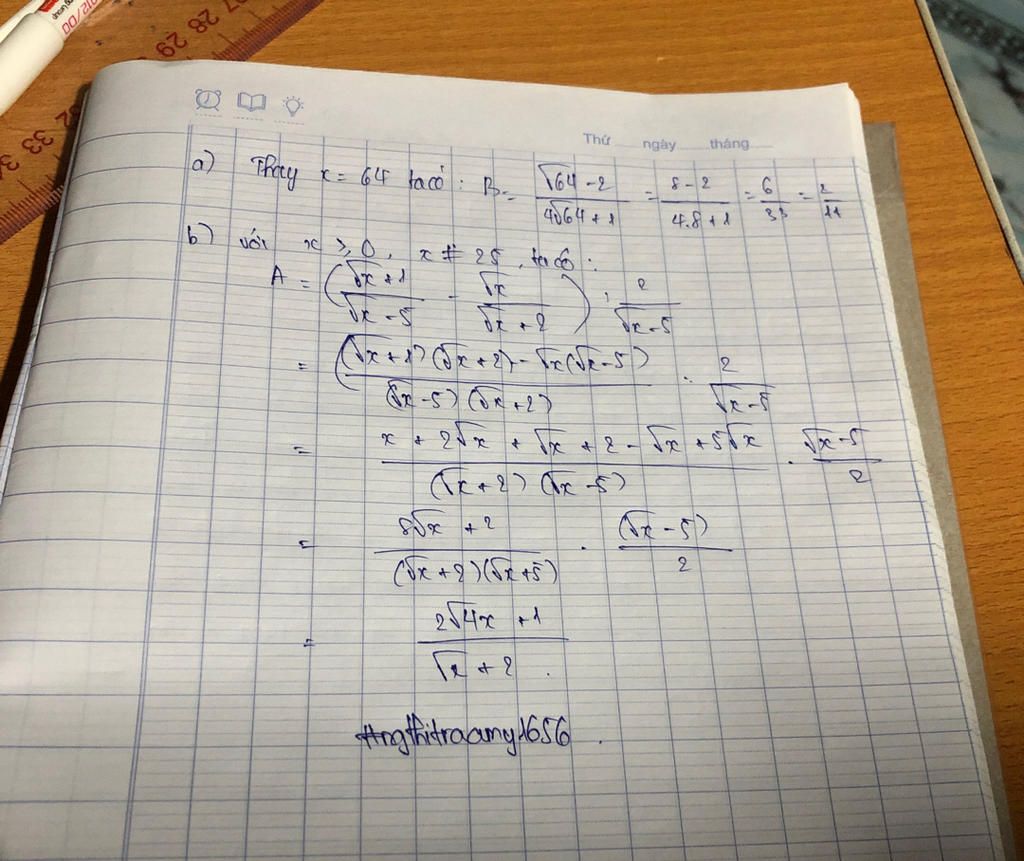 27 28 29
32 33 34
Thứ ngày tháng
a) Thay x = 64 ta có : B = \frac{√64 - 2}{4√64 + 1} = \frac{8 - 2}{4.8 + 1} = \frac{6}{33} = \frac{2}{11}
b) với x ≥ 0, x ≠ 25, ta có :
A = ( \frac{√x + 1}{√x - 5} - \frac{√x}{√x + 2} ) : \frac{2}{√x - 5}
= \frac{(√x + 1)(√x + 2) - √x(√x - 5)}{(√x - 5)(√x + 2)} : \frac{2}{√x - 5}
= \frac{x + 2√x + √x + 2 - √x + 5√x}{(√x + 2)(√x - 5)} . \frac{√x - 5}{2}
= \frac{8√x + 2}{(√x + 2)(√x + 5)} . \frac{(√x - 5)}{2}
= \frac{2√4x + 1}{√x + 2} .
#ngthitraamy1656 .